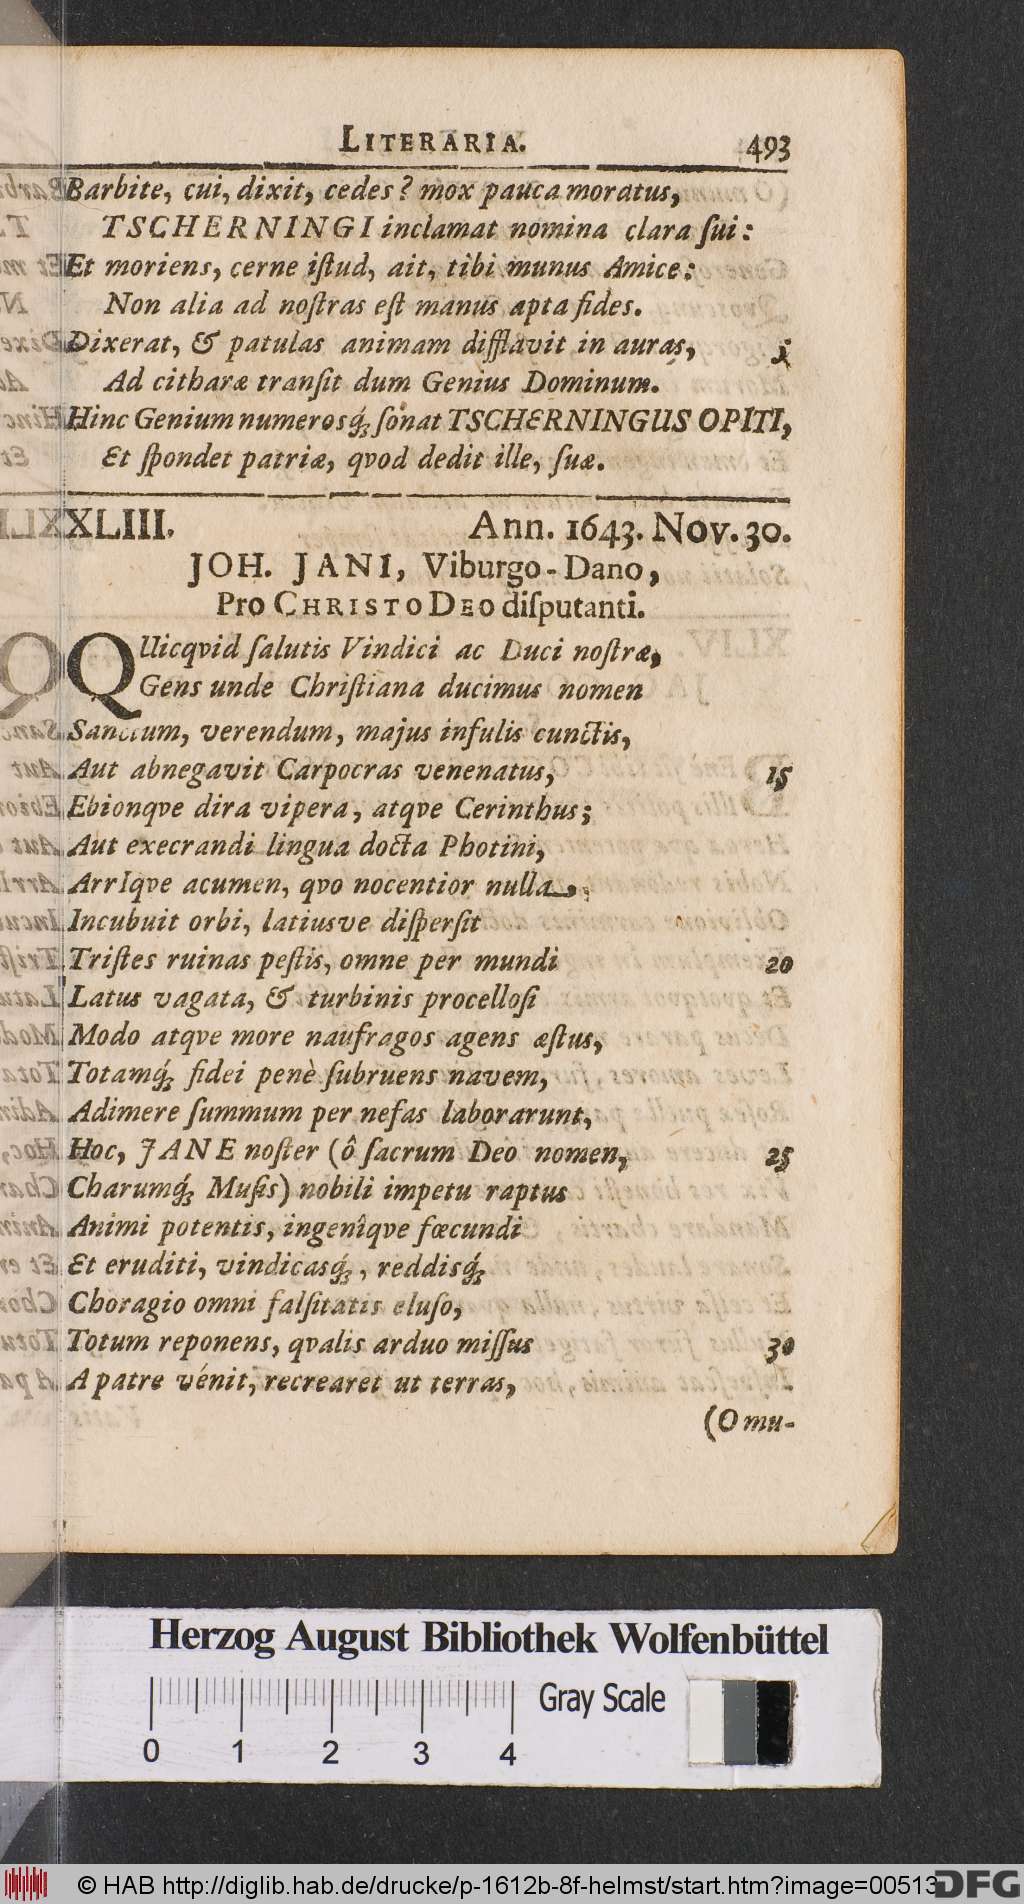 LITERARIA. 493
Barbite, cui, dixit, cedes? mox pauca moratus,
TSCHERNINGI inclamat nomina clara ſui:
Et moriens, cerne iſtud, ait, tibi munus Amice:
Non alia ad noſtras eſt manus apta fides.
Dixerat, & patulas animam difflavit in auras, 5
Ad citharæ tranſit dum Genius Dominum.
Hinc Genium numerosq́; ſonat TSCHERNINGUS OPITI,
Et ſpondet patriæ, qvod dedit ille, ſuæ.
XLIII. Ann. 1643. Nov. 30.
JOH. JANI, Viburgo-Dano,
Pro CHRISTO DEO diſputanti.
QUicqvid ſalutis Vindici ac Duci noſtræ,
Gens unde Chriſtiana ducimus nomen
Sanctum, verendum, majus infulis cunctis,
Aut abnegavit Carpocras venenatus, 15
Ebionqve dira vipera, atqve Cerinthus;
Aut execrandi lingua docta Photini,
ArrIqve acumen, qvo nocentior nulla,
Incubuit orbi, latiusve diſperſit
Triſtes ruinas peſtis, omne per mundi 20
Latus vagata, & turbinis procelloſi
Modo atqve more naufragos agens æſtus,
Totamq́; fidei penè ſubruens navem,
Adimere ſummum per nefas laborarunt,
Hoc, JANE noſter (ô ſacrum Deo nomen, 25
Charumq́; Muſis) nobili impetu raptus
Animi potentis, ingenîqve fœcundi
Et eruditi, vindicasq́;, reddisq́;
Choragio omni falſitatis eluſo,
Totum reponens, qvalis arduo miſſus 30
A patre vénit, recrearet ut terras,
(O mu-
Herzog August Bibliothek Wolfenbüttel
0 1 2 3 4 Gray Scale
© HAB http://diglib.hab.de/drucke/p-1612b-8f-helmst/start.htm?image=00513 DFG